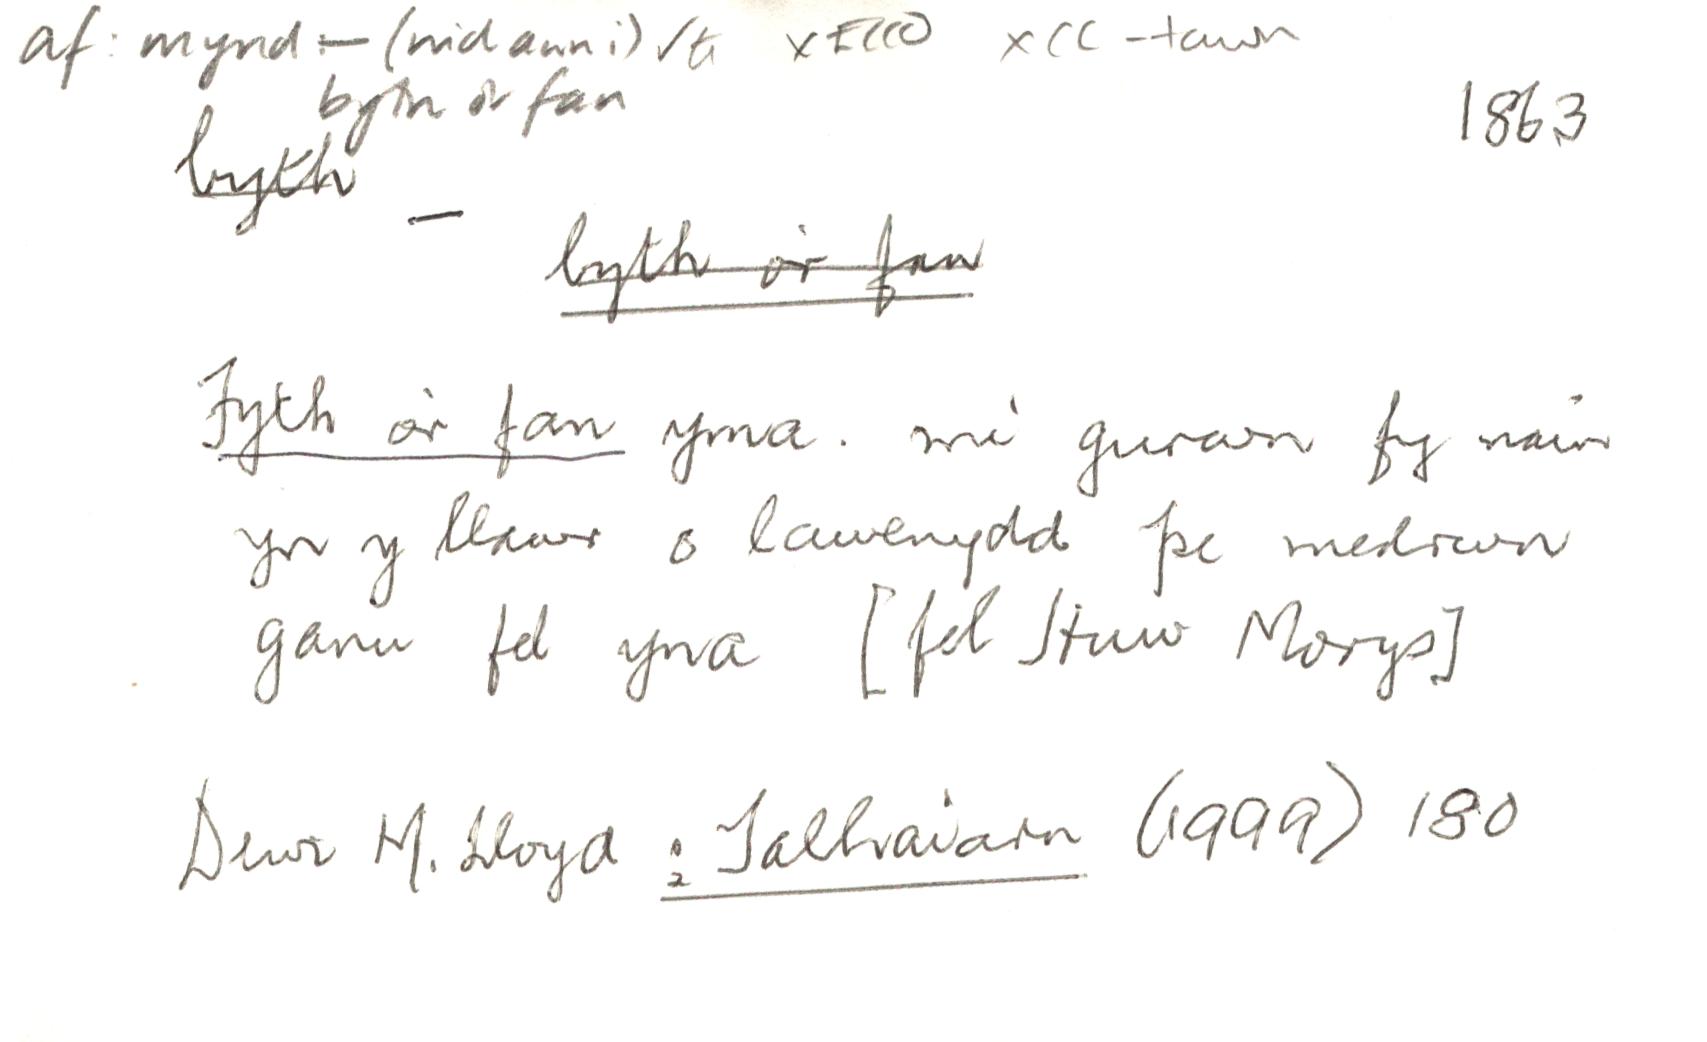 af: mynd :- (nid awn i) √ti xECCO xCC -tawn
byth o'r fan
1863
byth
—
byth o'r fan
Fyth o'r fan yma. mi gurawn fy nain
yn y llawr o lawenydd pe medrwn
ganu fel yna [fel Huw Morys]
Dewi M. Lloyd : Talhaiarn (1999) 180